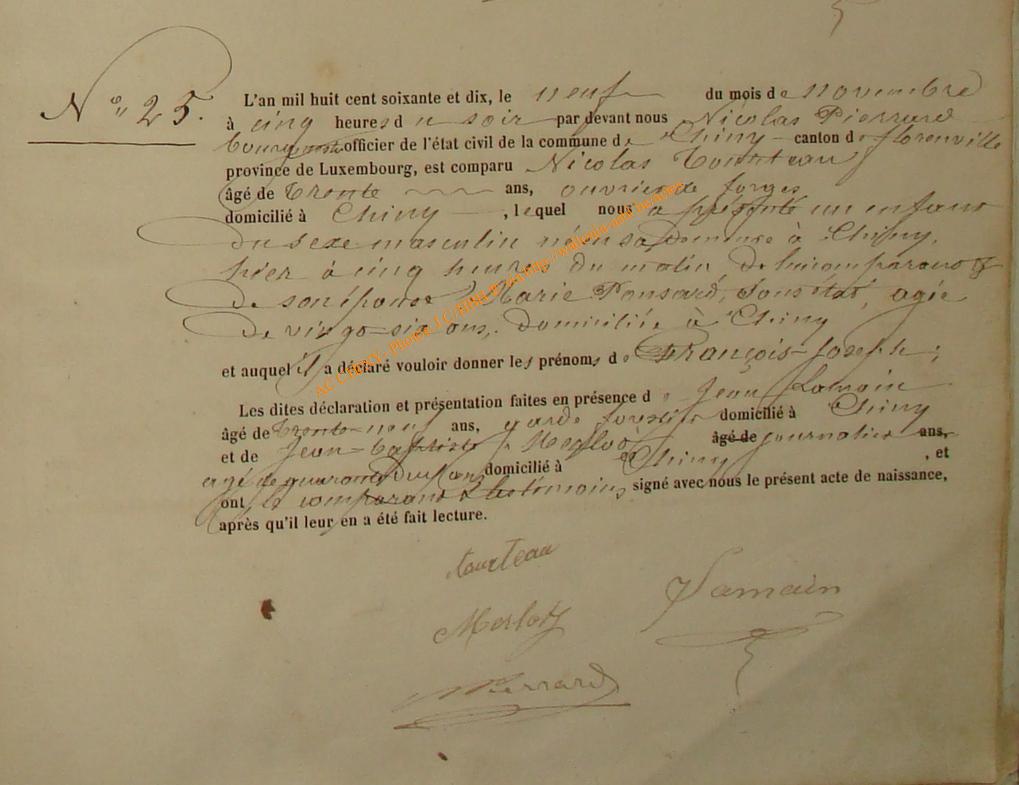 N° 25.
L'an mil huit cent soixante et dix, le neuf du mois de novembre
à cinq heures du soir par devant nous Nicolas Pierrard
bourgmestre officier de l'état civil de la commune de Chiny canton de florenville
province de Luxembourg, est comparu Nicolas Tourteau
âgé de Trente ans, ouvrier de forges
domicilié à Chiny, lequel nous a présenté un enfant
du sexe masculin né en sa demeure à Chiny,
hier à cinq heures du matin, de lui comparant &
de son épouse Marie Ponsard, sans état, agée
de vingt-six ans, domiciliée à Chiny
et auquel il a déclaré vouloir donner les prénoms de François-Joseph;
Les dites déclaration et présentation faites en présence de Jean Lamain
âgé de trente-neuf ans, garde forestier domicilié à Chiny
et de Jean-Baptiste âgé de journalier ans,
agé de quarante ans domicilié à Chiny, et
ont, le comparant & les témoins, signé avec nous le présent acte de naissance,
après qu'il leur en a été fait lecture.
tourteau
Lamain
Merlot
Pierrard
AC CHINY - Photos J.C.